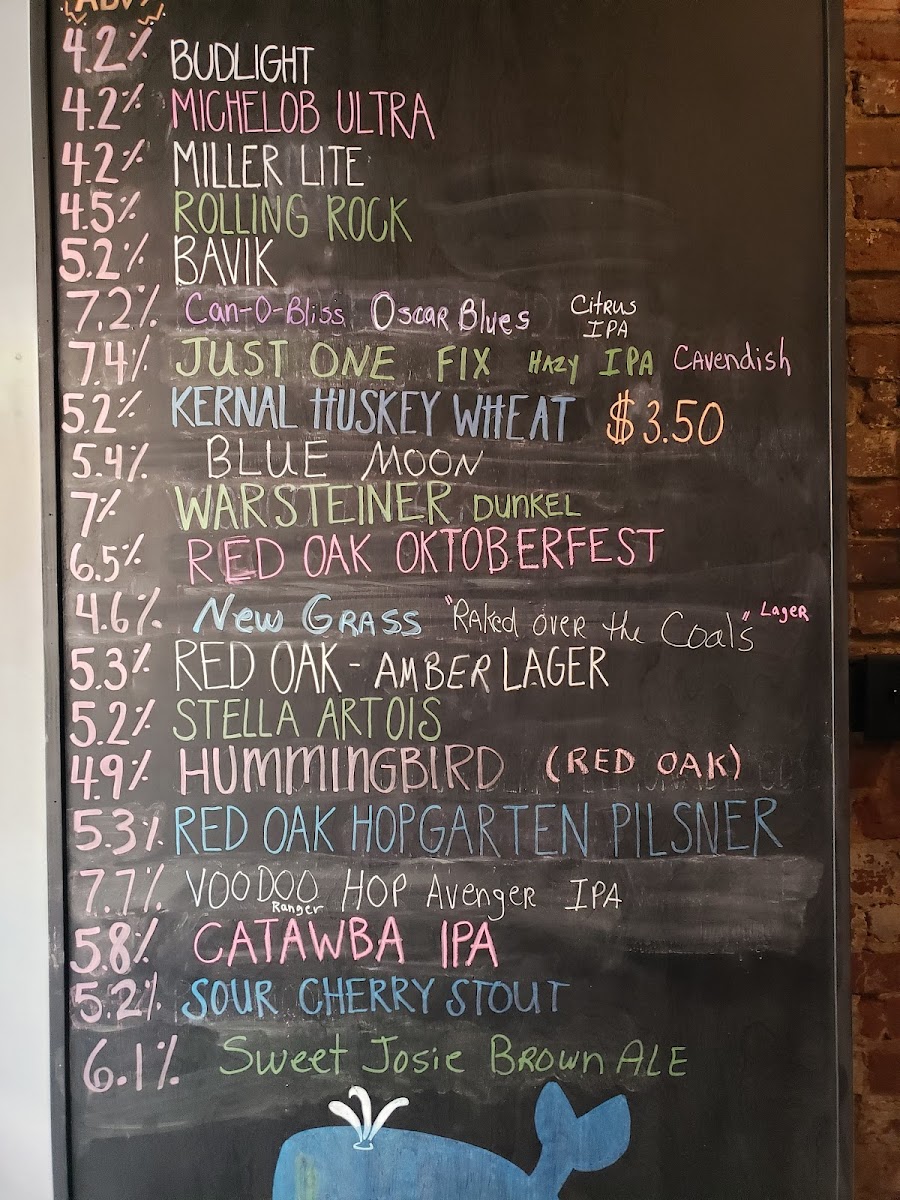 ABV%
4.2% BUDLIGHT
4.2% MICHELOB ULTRA
4.2% MILLER LITE
4.5% ROLLING ROCK
5.2% BAVIK
7.2% Can-O-Bliss Oscar Blues Citrus IPA
7.4% JUST ONE FIX HAZY IPA CAvendish
5.2% KERNAL HUSKEY WHEAT $3.50
5.4% BLUE MOON
7% WARSTEINER DUNKEL
6.5% RED OAK OKTOBERFEST
4.6% New GRASS "RAked over the Coals" LageR
5.3% RED OAK - AMBER LAGER
5.2% STELLA ARTOIS
4.9% HUMMINGBIRD (RED OAK)
5.3% RED OAK HOPGARTEN PILSNER
7.7% VOODOO Ranger HOP Avenger IPA
5.8% CATAWBA IPA
5.2% SOUR CHERRY STOUT
6.1% Sweet Josie BROWN ALE